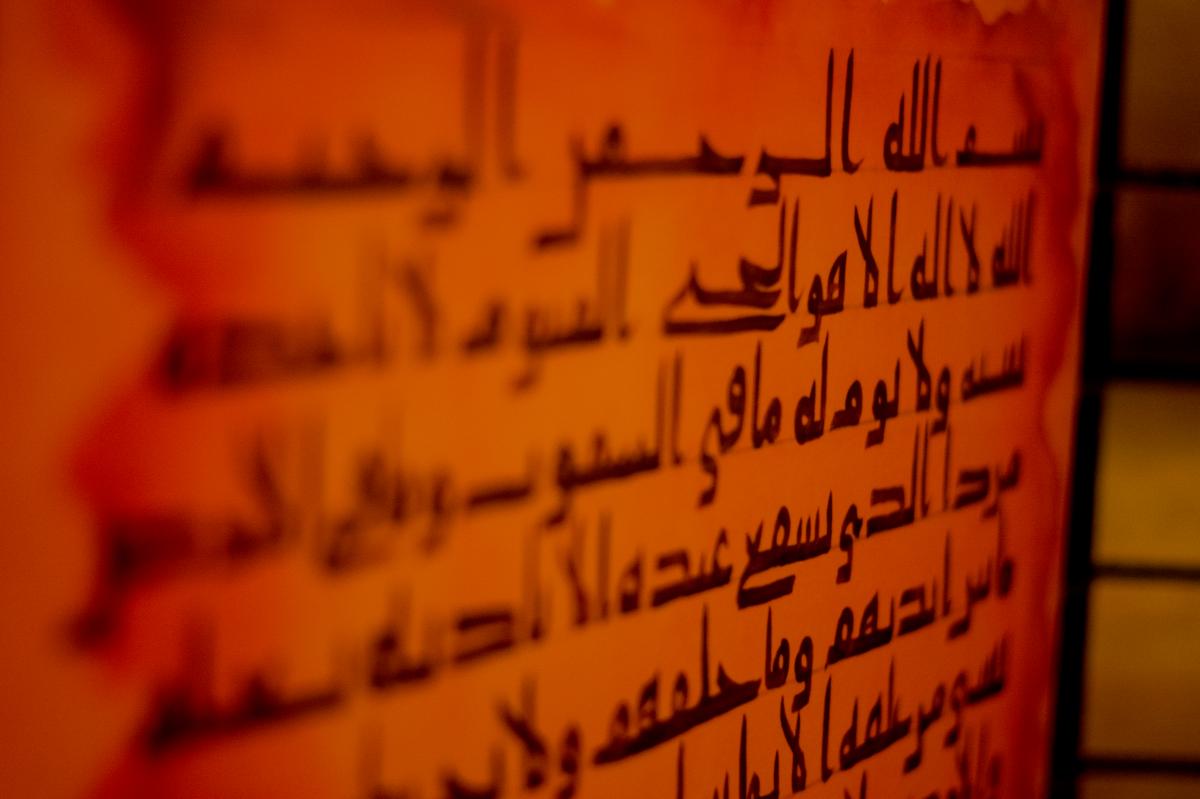 بسم الله الرحمن الرحيم
الله لا اله الا هو الحي القيوم لا تاخذه
سنه ولا نوم له ما في السموت وما في الارض
من ذا الذي يشفع عنده الا باذنه يعلم
ما بين ايديهم وما خلفهم ولا يحيطو
بشي من علمه الا بما